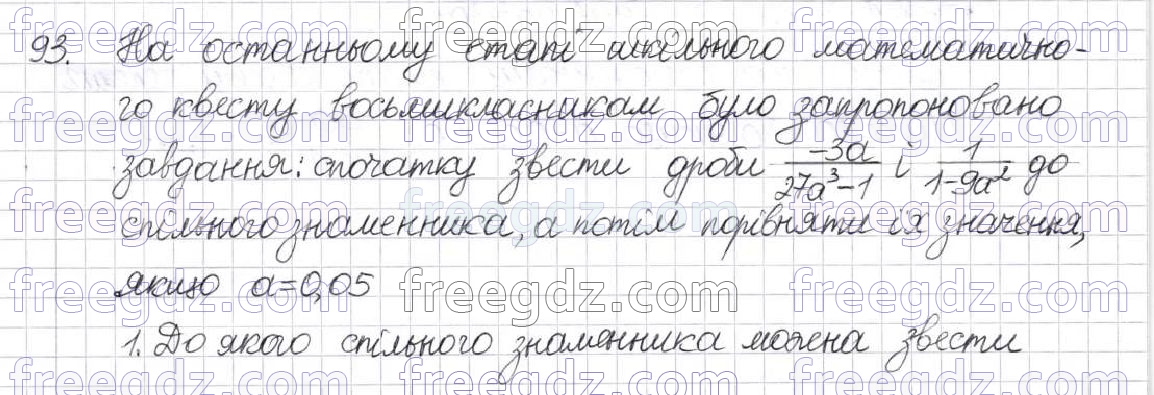 93. На останньому етапі шкільного математично-
го квесту восьмикласникам було запропоновано
завдання: спочатку звести дроби -3a/27a³-1 і 1/1-9a² до
спільного знаменника, а потім порівняти їх значення,
якщо a=0,05
1. До якого спільного знаменника можна звести
freegdz.com